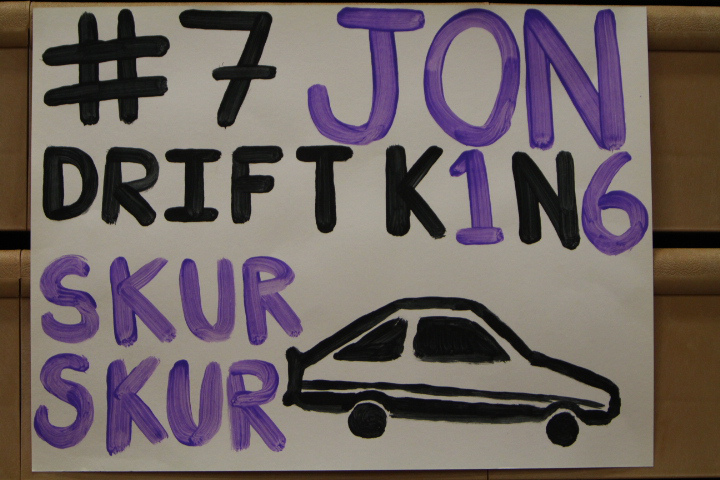 #7 JON
DRIFT K1N6
SKUR
SKUR